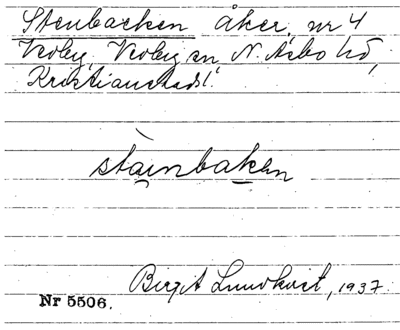 Stenbacken åker, nr 4
Kroby, Kroby sn, N. Åsbo hd,
Kristianstads l.
stainbakən
Birgit Lundkvist, 1937.
Nr 5506.